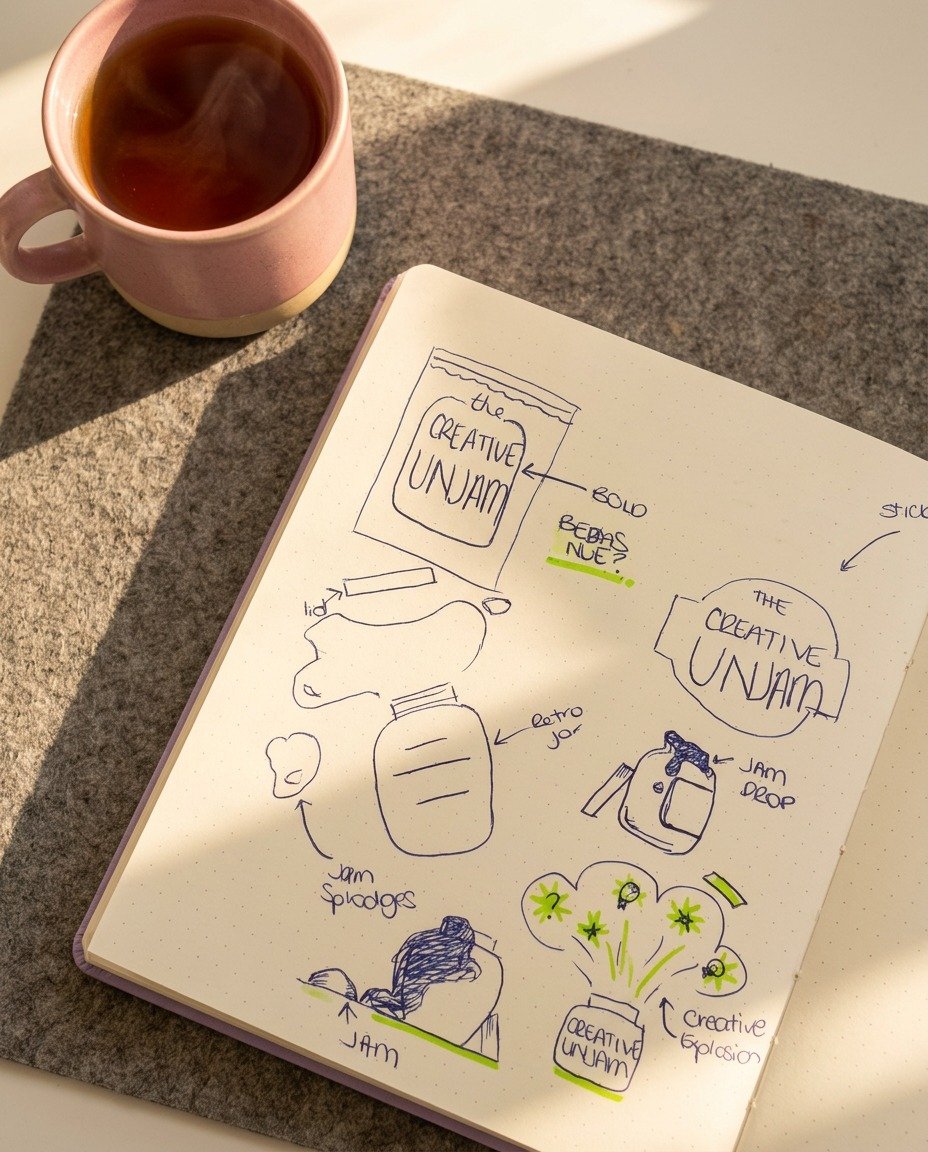 the
CREATIVE
UNJAM
BOLD
BEBAS
NUE?
lid
THE
CREATIVE
UNJAM
Retro
jar
JAM
DROP
Jam
Splodges
JAM
?
CREATIVE
UNJAM
Creative
Explosion